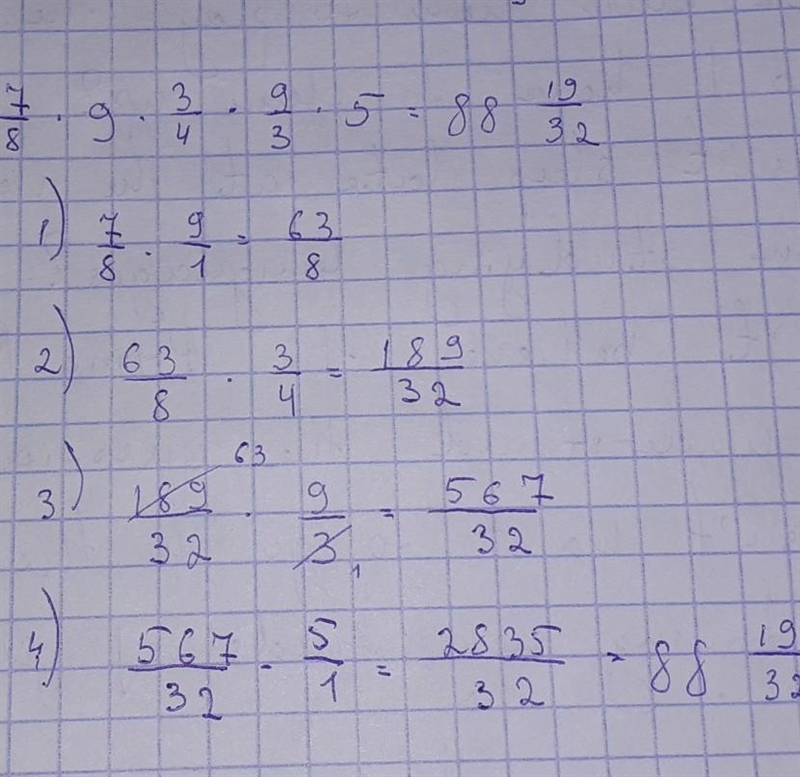 7/8 · 9 · 3/4 · 9/3 · 5 = 88 19/32
1) 7/8 · 9/1 = 63/8
2) 63/8 · 3/4 = 189/32
3) 189/32 · 9/3 = 567/32 63 1
4) 567/32 · 5/1 = 2835/32 = 88 19/32